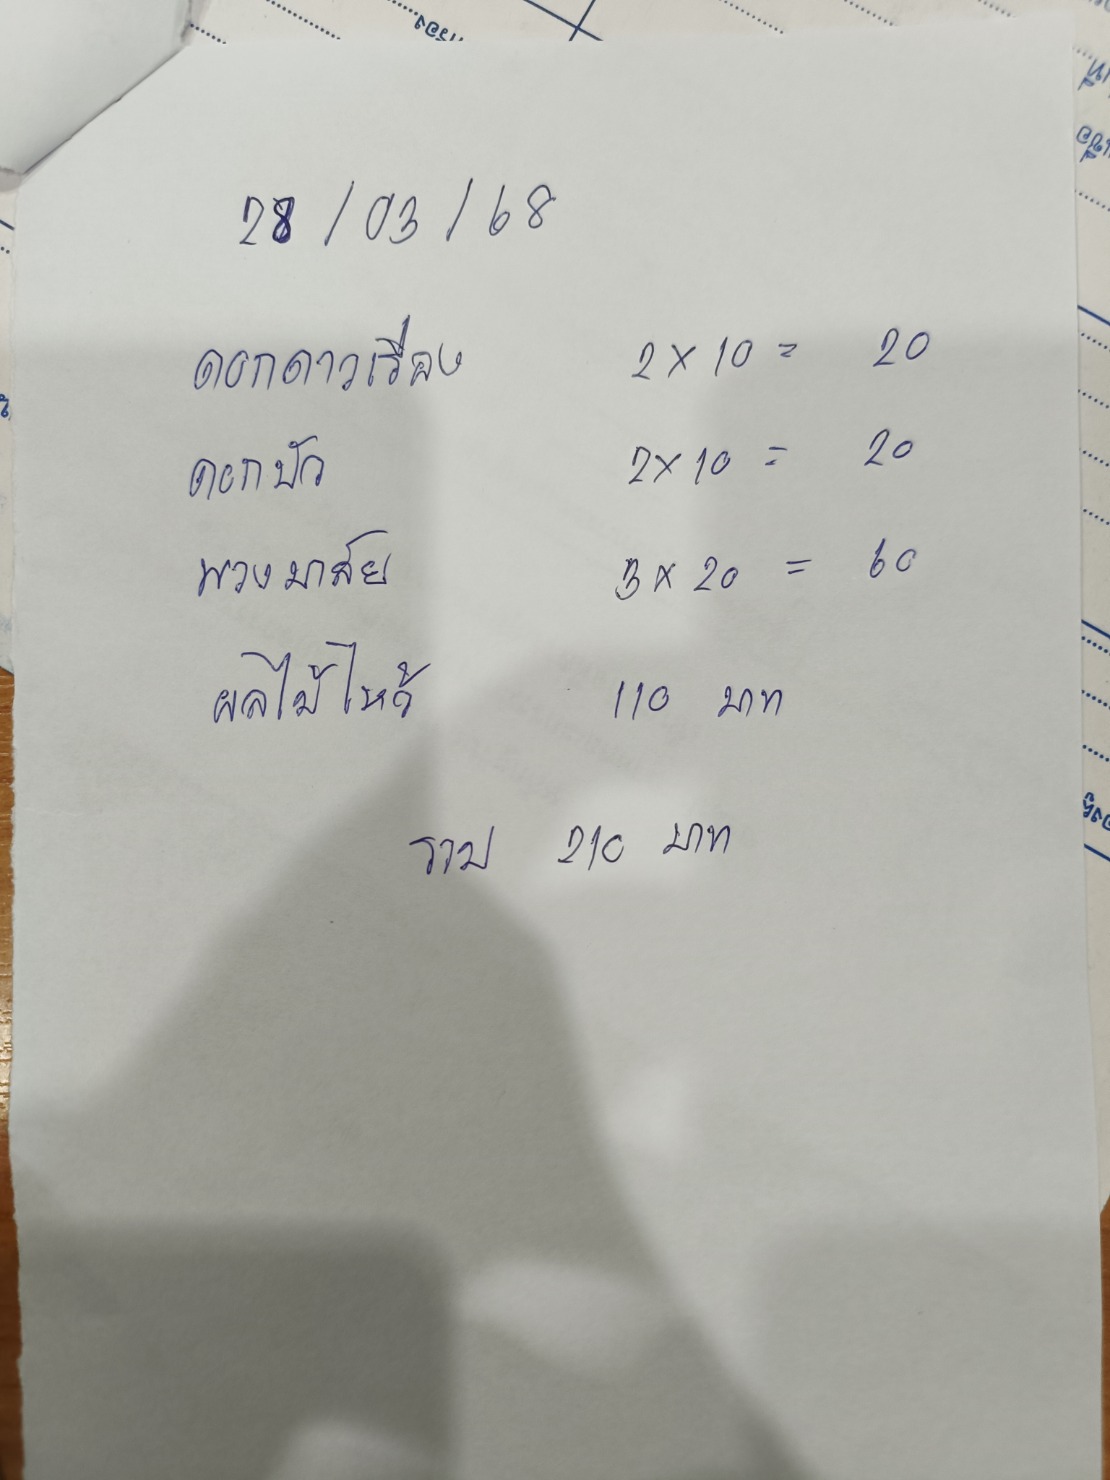 28/03/68
ดอกดาวเรือง 2 × 10 = 20
ดอกบัว 2 × 10 = 20
พวงมาลัย 3 × 20 = 60
ผลไม้ไหว้ 110 บาท
รวม 210 บาท